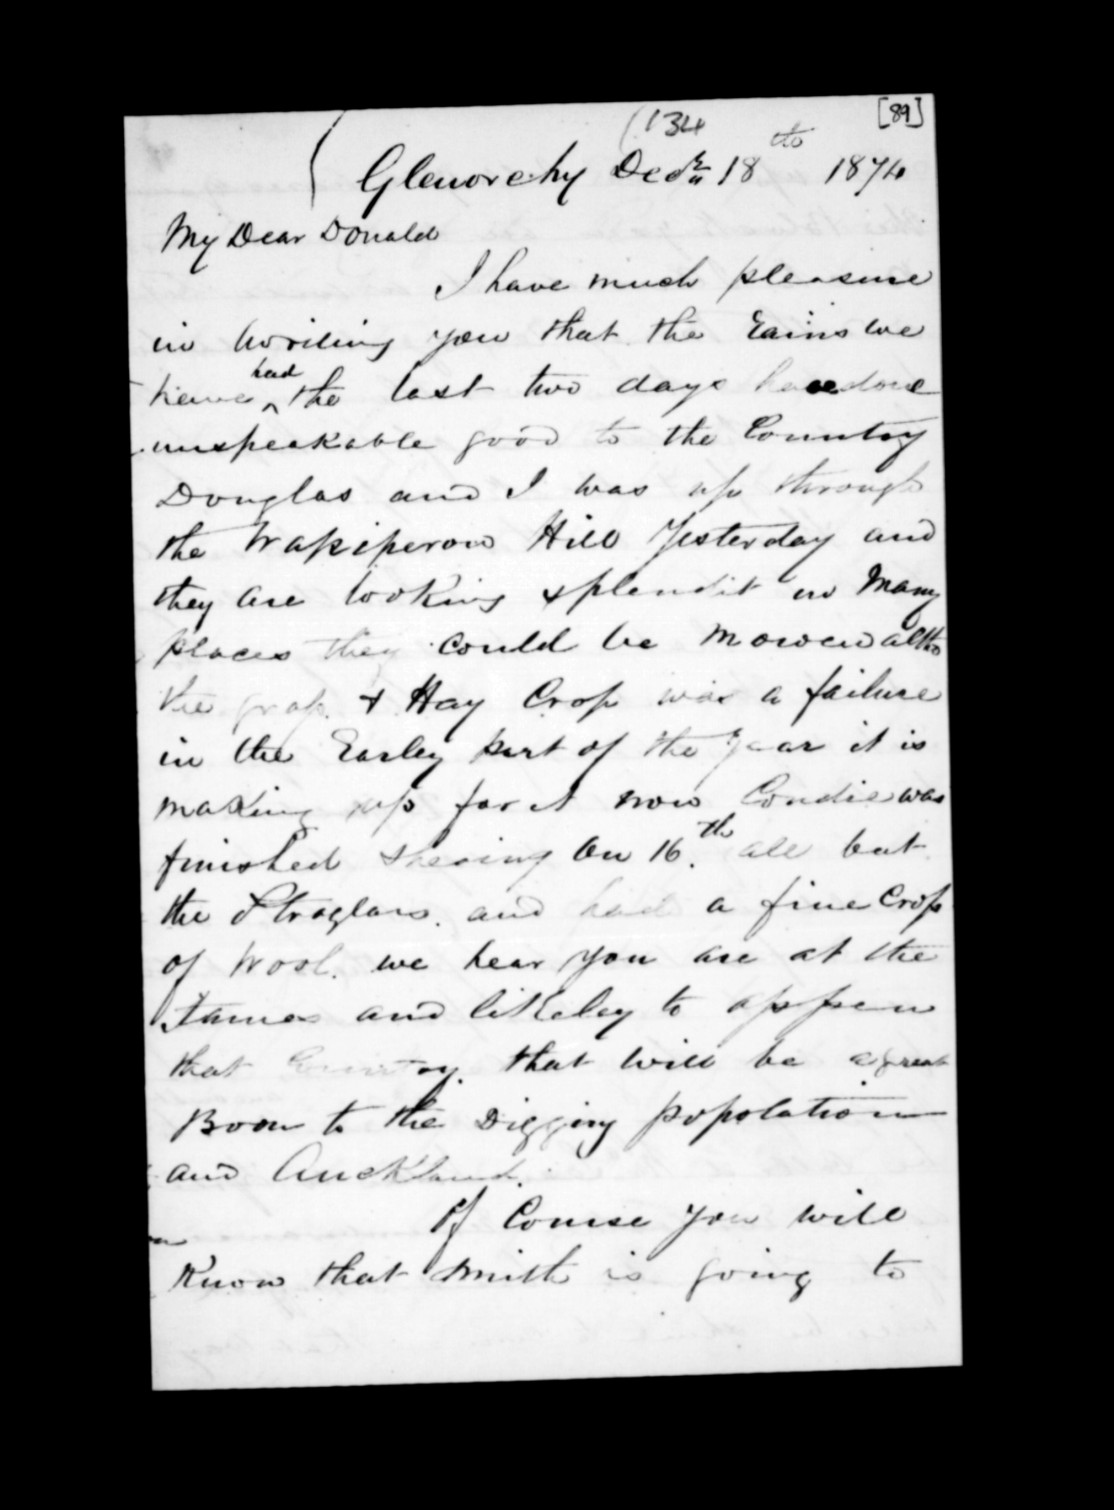 [89]
(134
Glenorchy Decr 18th 1874
My Dear Donald
I have much pleasure
in writing you that the Rains we
have had the last two days have done
unspeakable good to the Country
Douglas and I was up through
the Hill Yesterday and
they are looking splendit in Many
places they could be mowen altho
the gras & Hay Crop was a failure
in the Earley part of the year it is
making up for it now Condie was
finished shearing On 16.th all but
the Straglars. and had a fine Crop
of Wool. we hear you are at the
Tames and likeley to oppen
that Country. that will be a great
Boon to the Digging popolation
and Auckland.
Of Course you will
Know that Smith is going to